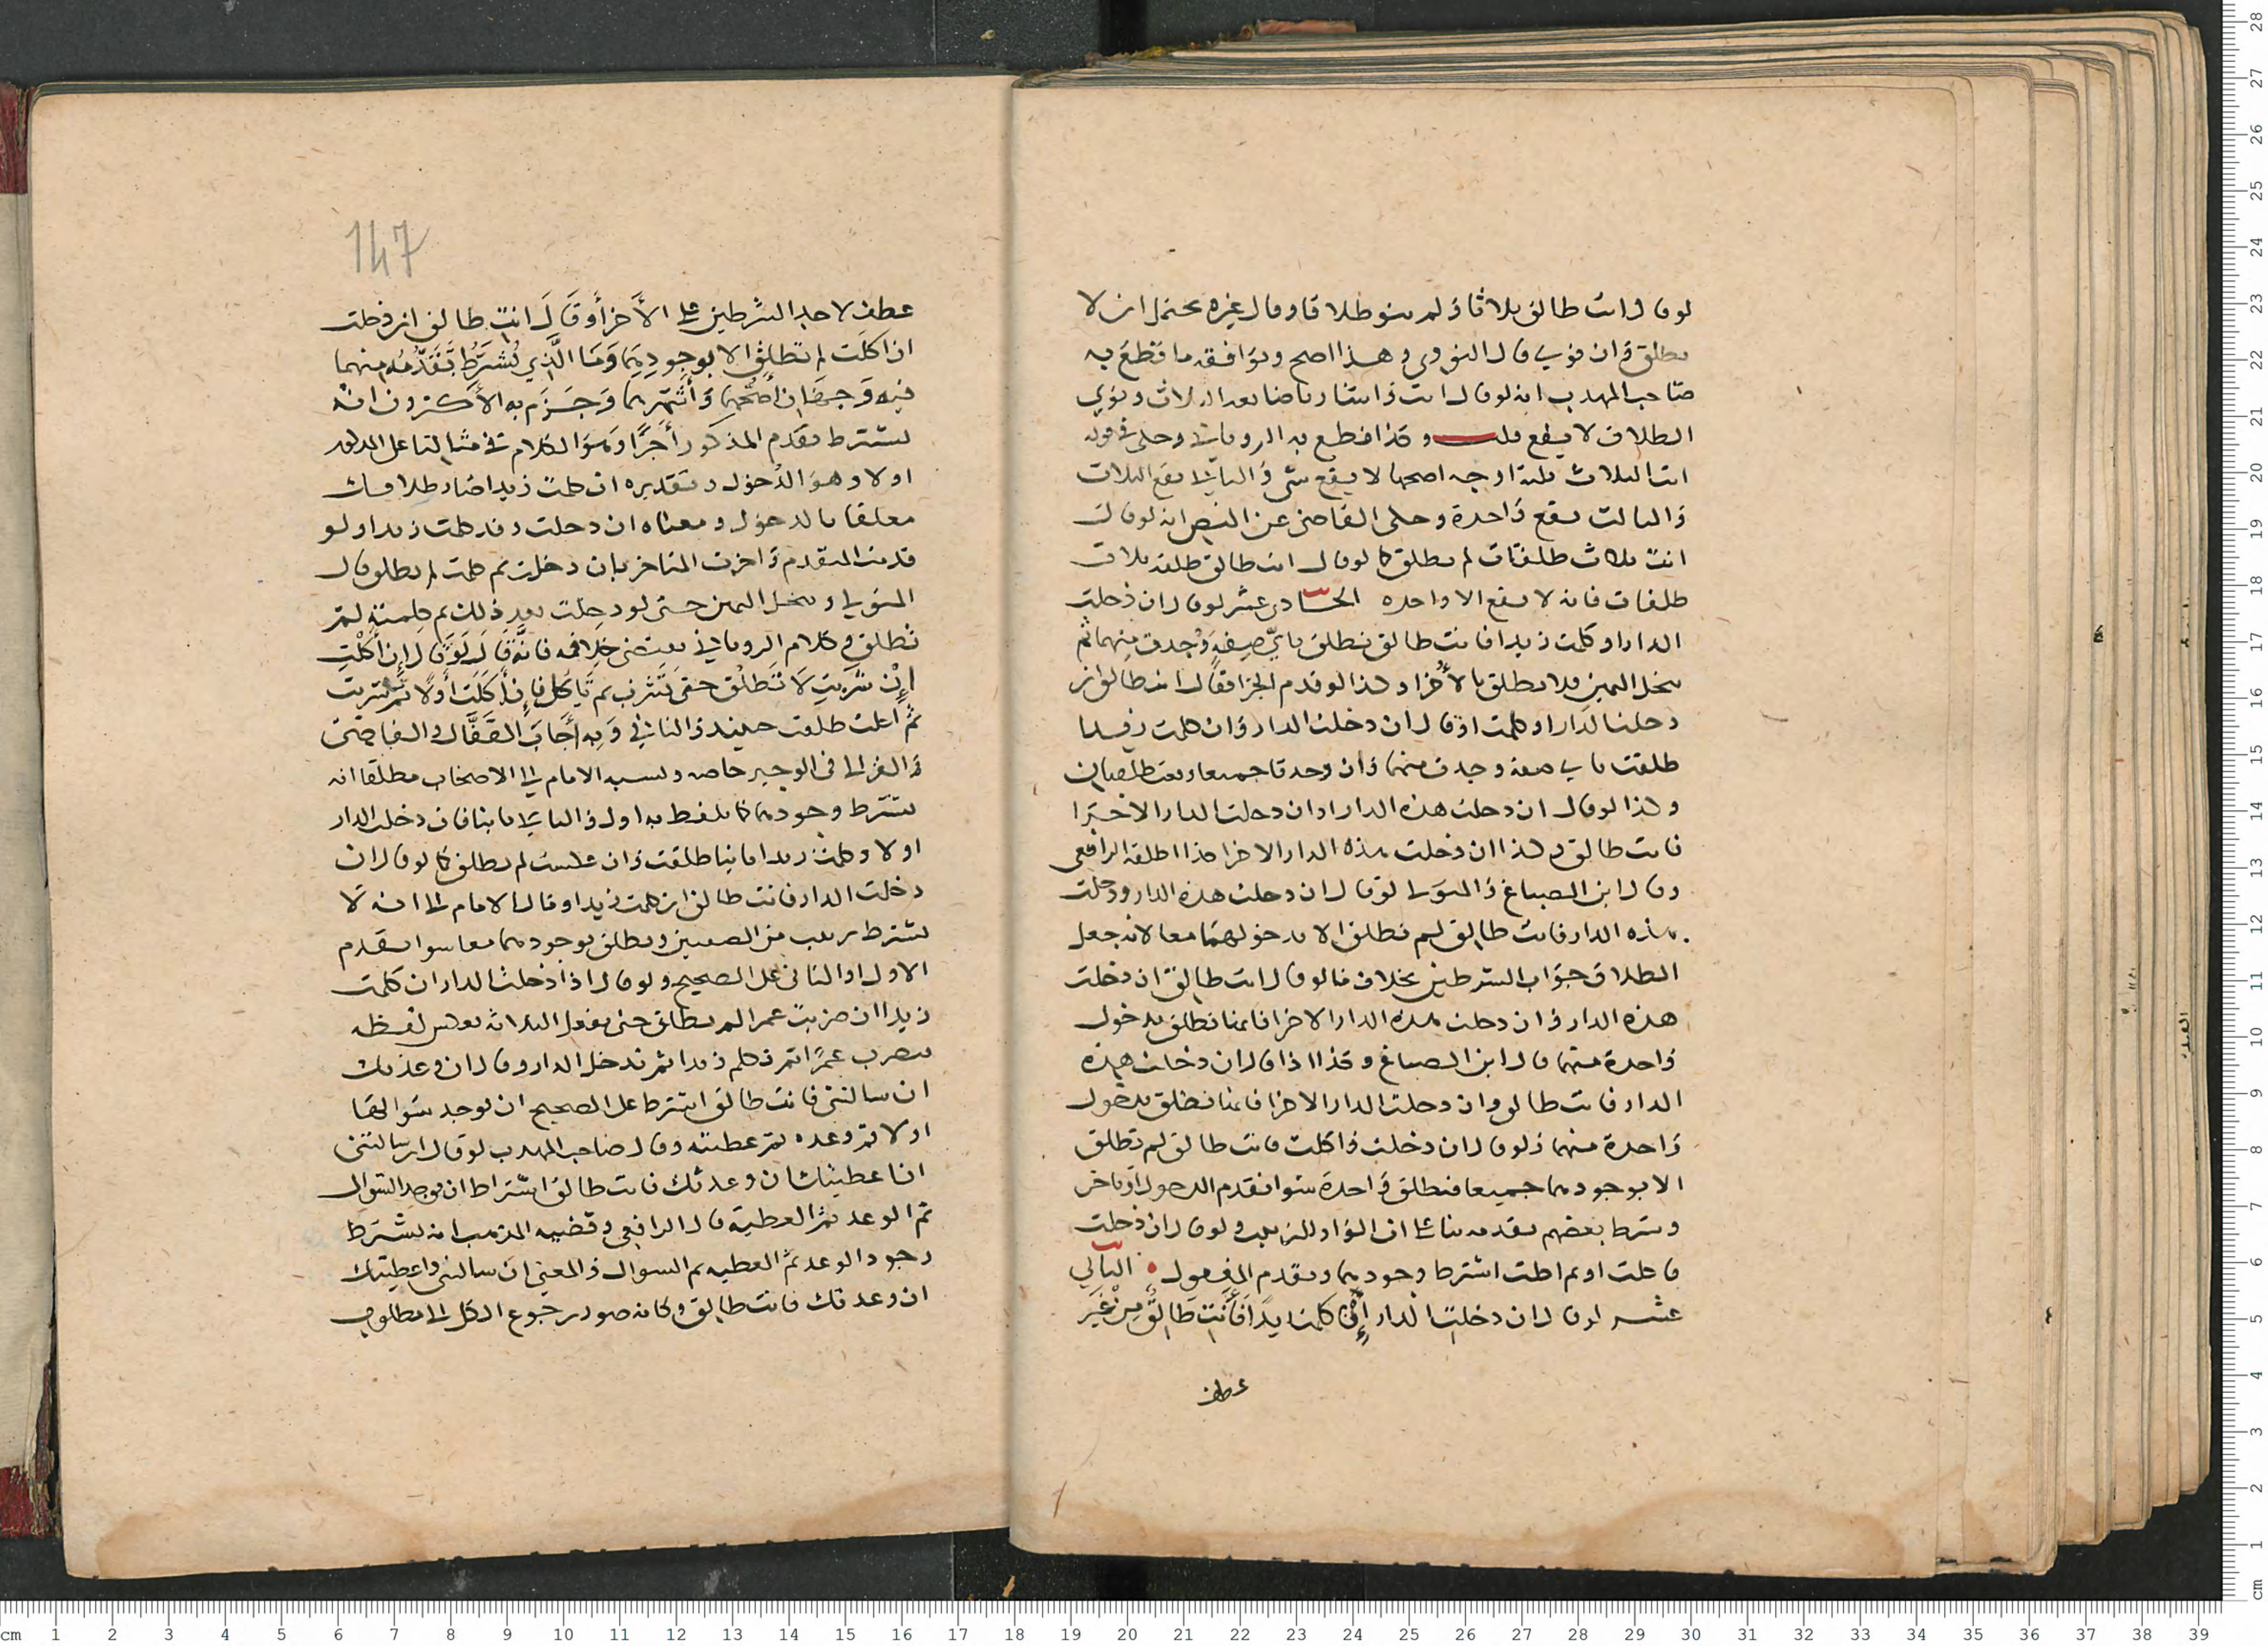 لو قال انت طالق ثلاثا ولم ينو طلاقا وقال غيره يحتمل ان لا
تطلق وان نوى قال النووي وهذا اصح ويوافقه ما قطع به
صاحب المهذب انه لو قال انت واستثنا بعد الثلاث ونوي
الطلاق لا يقع قلت وكذا قطع به الروياني وحكى في قوله
انت الثلاث ثلثة اوجه اصحها لا يقع شي والثاني يقع الثلاث
والثالث يقع واحدة وحكى القاضي عن النص انه لو قال
انت ثلاث طلقات لم تطلق كما لو قال انت طالق طلقة ثلاث
طلقات فانه لا يقع الا واحده الحادي عشر لو قال ان دخلت
الدار او كلمت زيدا فانت طالق فتطلق باي صفة وجدت منهما ثم
تنحل اليمين فلا تطلق بالاخرا وكذا لو قدم الجزا فقال انت طالق ان
دخلت الدار او كلمت او قال ان دخلت الدار وان كلمت زيدا
طلقت باي صفة وجدت منهما وان وجدتا جميعا وقعت طلقتان
وكذا لو قال ان دخلت هذه الدار اوان دخلت الدار الاخرا
فانت طالق وكذا ان دخلت هذه الدار الاخرا هكذا اطلقه الرافعي
وقال ابن الصباغ والمتولي لو قال ان دخلت هذه الدار ودخلت
هذه الدار فانت طالق لم تطلق الا بدخولهما معا لانه جعل
الطلاق جواب الشرطين بخلاف ما لو قال انت طالق ان دخلت
هذه الدار وان دخلت هذه الدار الاخرا فانها تطلق بدخول
واحدة منهما قال ابن الصباغ وكذا اذا قال ان دخلت هذه
الدار فانت طالق وان دخلت الدار الاخرا فانها تطلق بدخول
واحدة منهما ولو قال ان دخلت واكلت فانت طالق لم تطلق
الا بوجودهما جميعا فتطلق واحدة سوا تقدم الدخول او تاخر
وشرط بعضهم تقدمه بنا على ان الواو للترتيب ولو قال ان دخلت
فاكلت او ثم اكلت اشترط وجودهما وتقدم المفعول الثاني
عشر لو قال ان دخلت الدار ان كلمت زيدا فانت طالق من غير
عطف
147
عطف لاحد الشرطين على الاخر او قال انت طالق ان دخلت
ان اكلت لم تطلق الا بوجودهما وما الذي يشترط تقدمه منهما
فيه وجهان اصحهما واشهرهما وجزم به الاكثرون انه
يشترط تقدم المذكور اخرا وهو الكلام في مثالنا على المذكور
اولا وهو الدخول وتقديره ان كلمت زيدا صار طلاقك
معلقا بالدخول ومعناه ان دخلت وقد كلمت زيدا ولو
قدمت المتقدم واخرت المتاخر بان دخلت ثم كلمت لم تطلق قال
المتولي وتنحل اليمين حتى لو دخلت بعد ذلك ثم كلمته لم
تطلق وكلام الروياني يقتضي خلافه فانه قال لو قال ان اكلت
ان شربت لا تطلق حتى تشرب ثم تاكل فان اكلت اولا ثم شربت
ثم اكلت طلقت حينئذ والثاني وبه اجاب القفال والقاضي
والغزالي في الوجيز خاصه ونسبه الامام الى الاصحاب مطلقا انه
يشترط وجودهما كما تلفظ به اولا والثاني ثانيا فان دخلت الدار
اولا وكلمت زيدا ثانيا طلقت وان عكست لم تطلق كما لو قال ان
دخلت الدار فانت طالق ان كلمت زيدا وقال الامام الى انه لا
يشترط ترتيب في الصفتين وتطلق بوجودهما معا سوا تقدم
الاول او الثاني على الصحيح ولو قال اذا دخلت الدار ان كلمت
زيدا ان ضربت عمرا لم تطلق حتى تفعل الثلاثة بعكس لفظه
فتضرب عمرا ثم تكلم زيدا ثم تدخل الدار وقال ان وعدتك
ان سالتني فانت طالق اشترط على الصحيح ان يوجد سوالها
اولا ثم وعده ثم عطيته وقال صاحب المهذب لو قال ان سالتني
ان اعطيتك ان وعدتك فانت طالق اشترط ان يوجد السوال
ثم الوعد ثم العطية قال الرافعي وقضيه المذهب انه يشترط
وجود الوعد ثم العطيه ثم السوال والمعنى ان سالتني واعطيتك
ان وعدتك فانت طالق وكانه صور رجوع الكل الى مطلوب